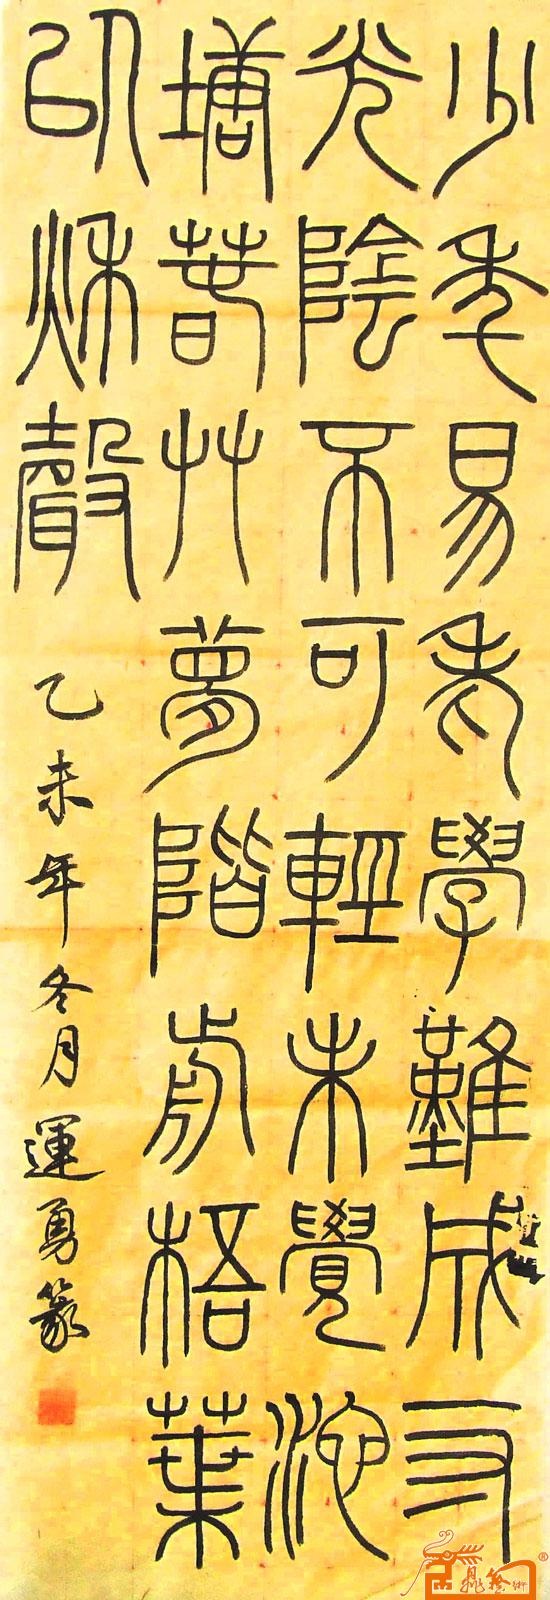 少年易老學難成一寸
光陰不可輕未覺池
塘春草夢階前梧葉
已秋聲
乙未年冬月運勇篆